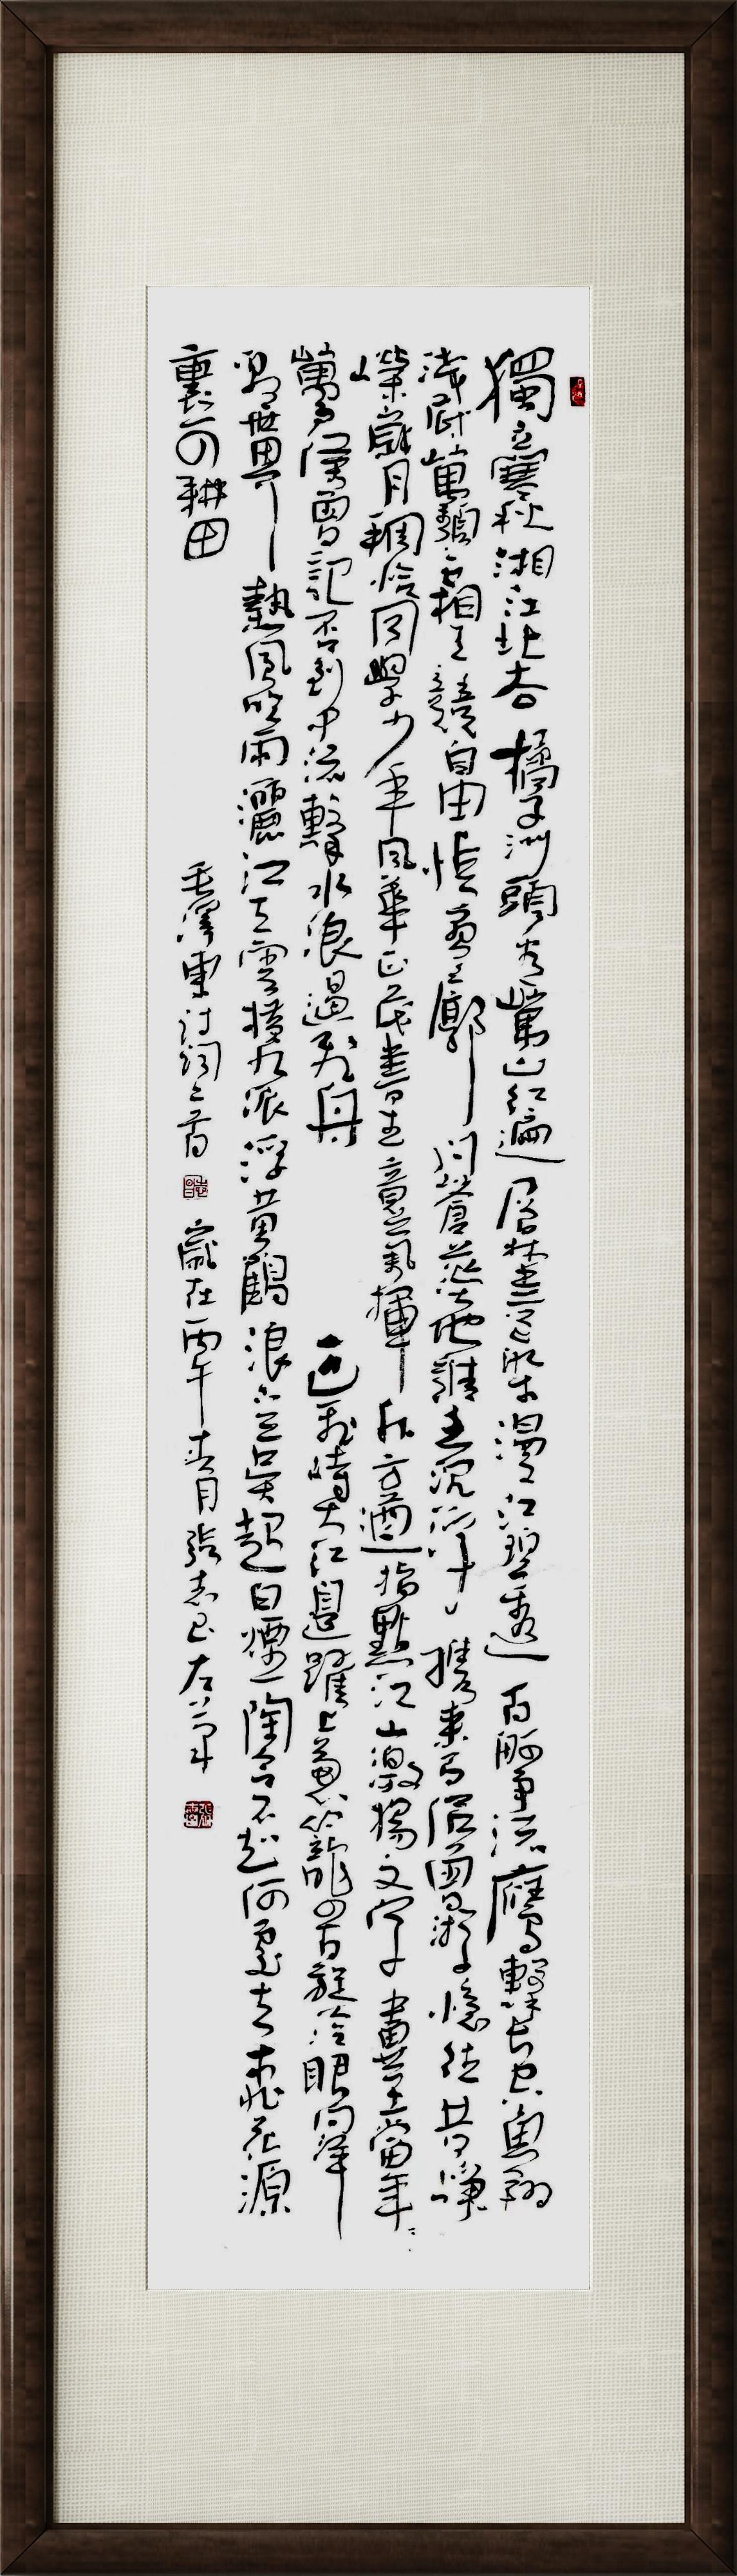 獨立寒秋湘江北去橘子洲頭看萬山紅遍層林盡染漫江碧透百舸爭流鷹擊長空魚翔
淺底萬類霜天競自由悵寥廓問蒼茫大地誰主沉浮攜來百侶曾游憶往昔崢
嶸歲月稠恰同學少年風華正茂書生意氣揮斥方遒指點江山激揚文字糞土當年
萬戶侯曾記否到中流擊水浪遏飛舟 一山飛峙大江邊躍上蔥蘢四百旋冷眼向洋
看世界熱風吹雨灑江天雲橫九派浮黃鶴浪下三吳起白煙陶令不知何處去桃花源
裏可耕田
毛澤東詩詞二首 歲在丙午春月張志昌左筆